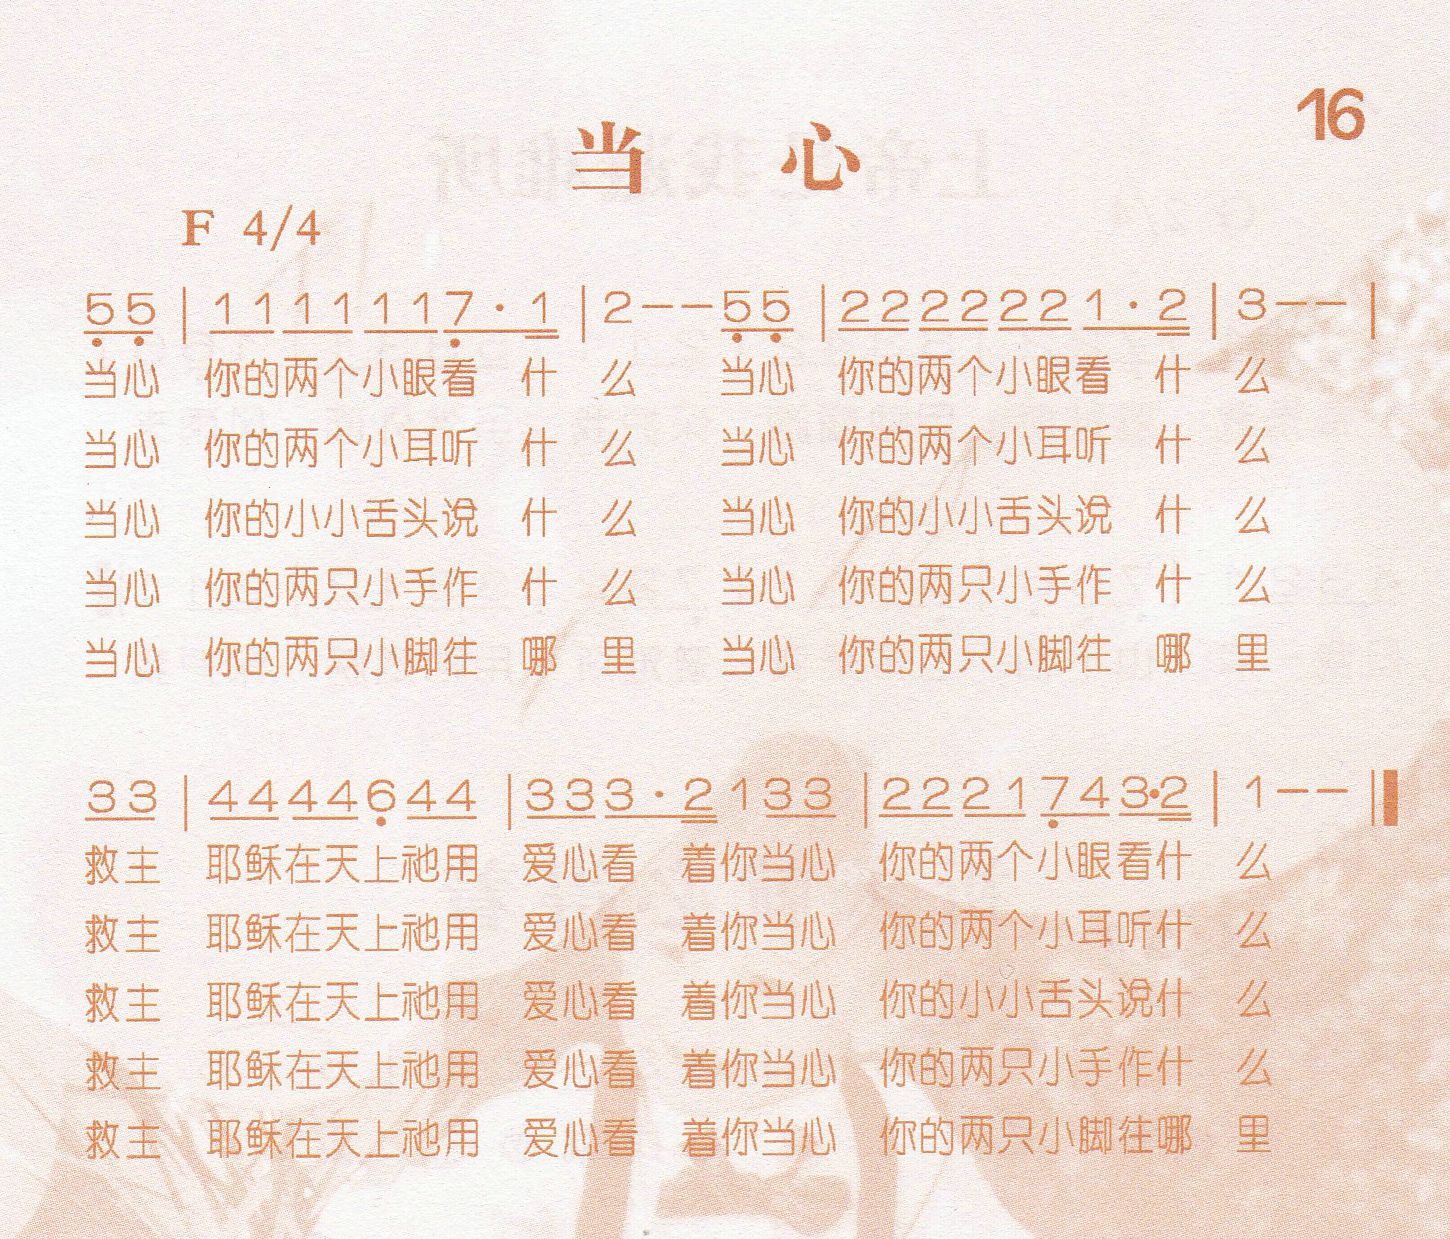 16
当 心
F 4/4
5 5 | 1 1 1 1 1 1 7 · 1 | 2 — — 5 5 | 2 2 2 2 2 2 1 · 2 | 3 — — |
当心 你的两个小眼看 什 么 当心 你的两个小眼看 什 么
当心 你的两个小耳听 什 么 当心 你的两个小耳听 什 么
当心 你的小小舌头说 什 么 当心 你的小小舌头说 什 么
当心 你的两只小手作 什 么 当心 你的两只小手作 什 么
当心 你的两只小脚往 哪 里 当心 你的两只小脚往 哪 里
3 3 | 4 4 4 4 6 4 4 | 3 3 3 · 2 1 3 3 | 2 2 2 1 7 4 3 · 2 | 1 — — |
救主 耶稣在天上祂用 爱心看 着你当心 你的两个小眼看什 么
救主 耶稣在天上祂用 爱心看 着你当心 你的两个小耳听什 么
救主 耶稣在天上祂用 爱心看 着你当心 你的小小舌头说什 么
救主 耶稣在天上祂用 爱心看 着你当心 你的两只小手作什 么
救主 耶稣在天上祂用 爱心看 着你当心 你的两只小脚往哪 里